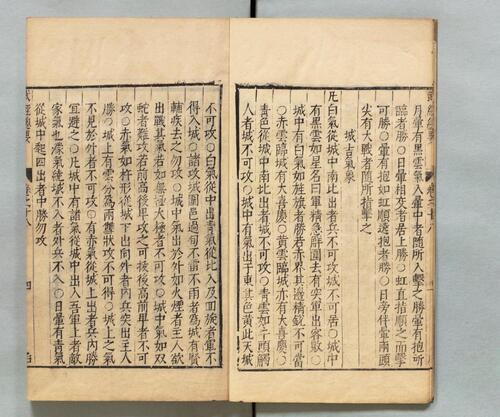 月暈有黑雲氣入暈中者隨所入擊之勝暈有抱所
臨者勝○日暈相交者居上勝○虹直指順之而擊
可勝○暈有抱如虹順逃抱者勝○日旁伴暈兩頭
尖有大戰者隨所指擊之
城吉氣象
凡白氣從城中南北出者兵不可攻城不可居○城中
有黑雲如星名曰軍精急解圍去有突軍出容敗○
城中有白氣如旌旗者勝若赤界其邊精銳不可當
○赤雲臨城有大喜慶○黃雲臨城亦有大喜慶○
青色從城中南北出者城不可攻○青雲如牛頭觸
人者城不可攻○城中有氣出于東其色黃此天城
不可攻○白氣從中出青氣從北入反囬旋者軍不
得入城○諸攻城圍邑過旬不雷不雨者為城有賢
輔疾去之勿攻○城中氣出於外如火煙者主人欲
出戰其氣若如無極大極者不可攻○城中氣如双
蛇者難攻若前高後卑攻之可援後高前卑者不可
攻○赤氣如杵形從城下出向外者內兵突出主人
勝○城上有雲分為兩彗狀攻不可得○城上之氣
不見於外者不可攻○有赤氣從城上出者兵內勝
宜避之○凡城中有諸氣從城中出入吾軍上者敵
家氣也濛氣繞城不入者外兵不入○日暈有青氣
從城中起四出者中勝勿攻
四